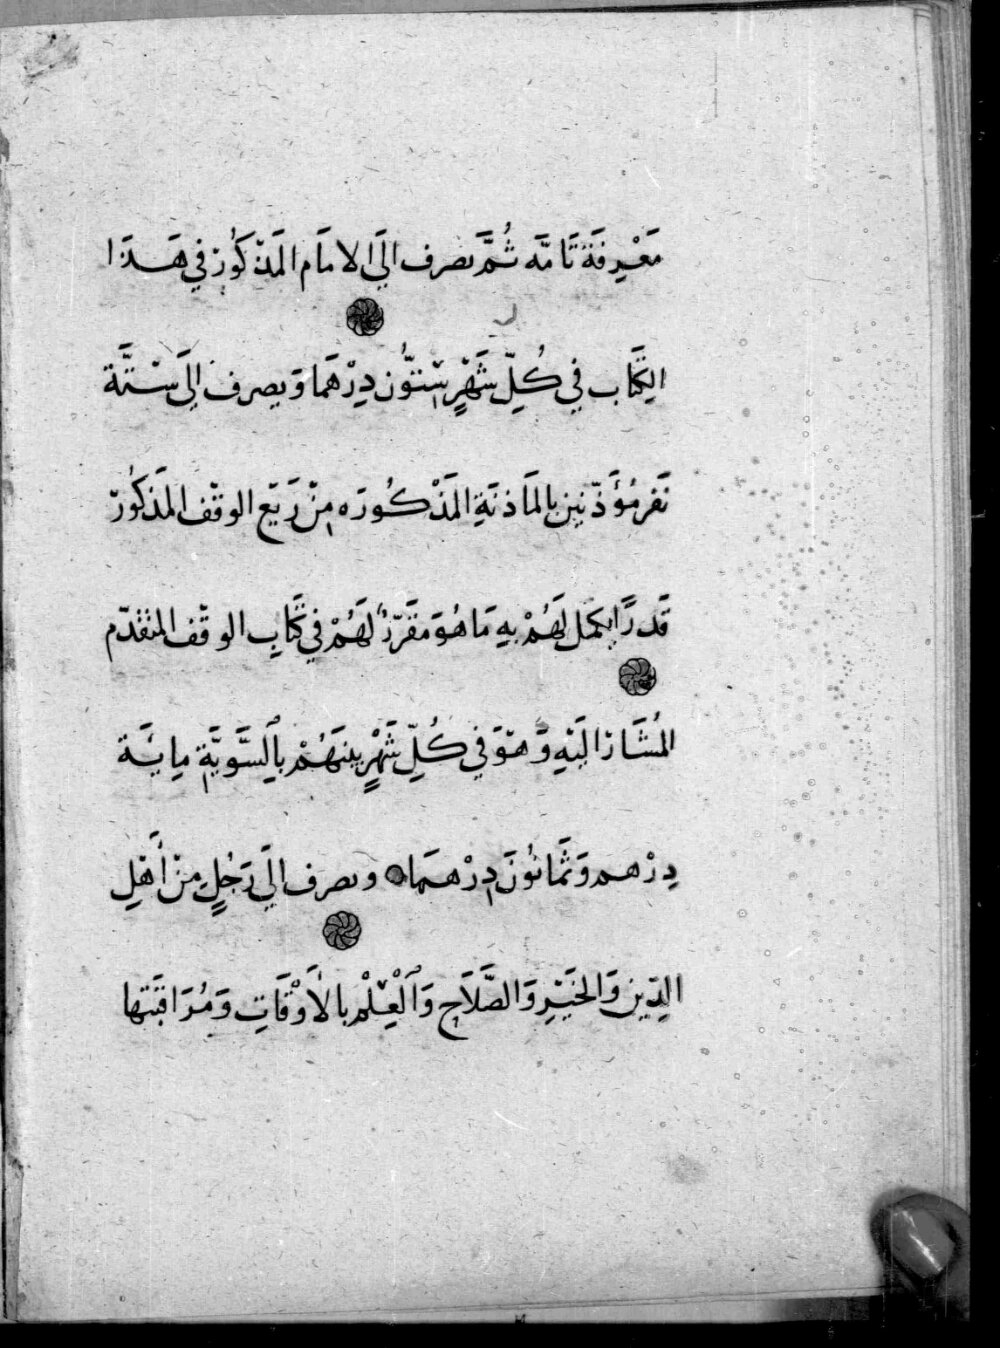 مَعْرِفَةً تَامَّه ثُمَّ يصرف الَي الامَام المَذْكَوُر في هَذَا
الكِتَاب في كُلِّ شَهْرٍ سِتوُّن دِرْهَما وَيصرف الَي سْتَّة
نَفر مُؤَذّنين بالمَاذنَةِ المَذْكُورَه مِنْ رَيَع الوقْف المَذكوُر
قَدرًا يكمل لَهُمْ بهِ مَا هُوَ مقَرّرٌ لَهُمْ في كَتَابِ الوقْف المتقدّم
المُشَار اليَهِ وَهوَ في كُلِّ شَهْرٍ بينهَُمْ بالِسَّوِيَّةِ مايَة
دِرْهم وَثَمانوُنَ دِرْهَمَا ويصرف الَي رَجُلٍ مِنْ أَهْلِ
الدِّين وَالخَيْرِ وَالصَّلَاحِ وَالْعِلْم بالأَوْقَاتِ وَمُرَاقَبَتها